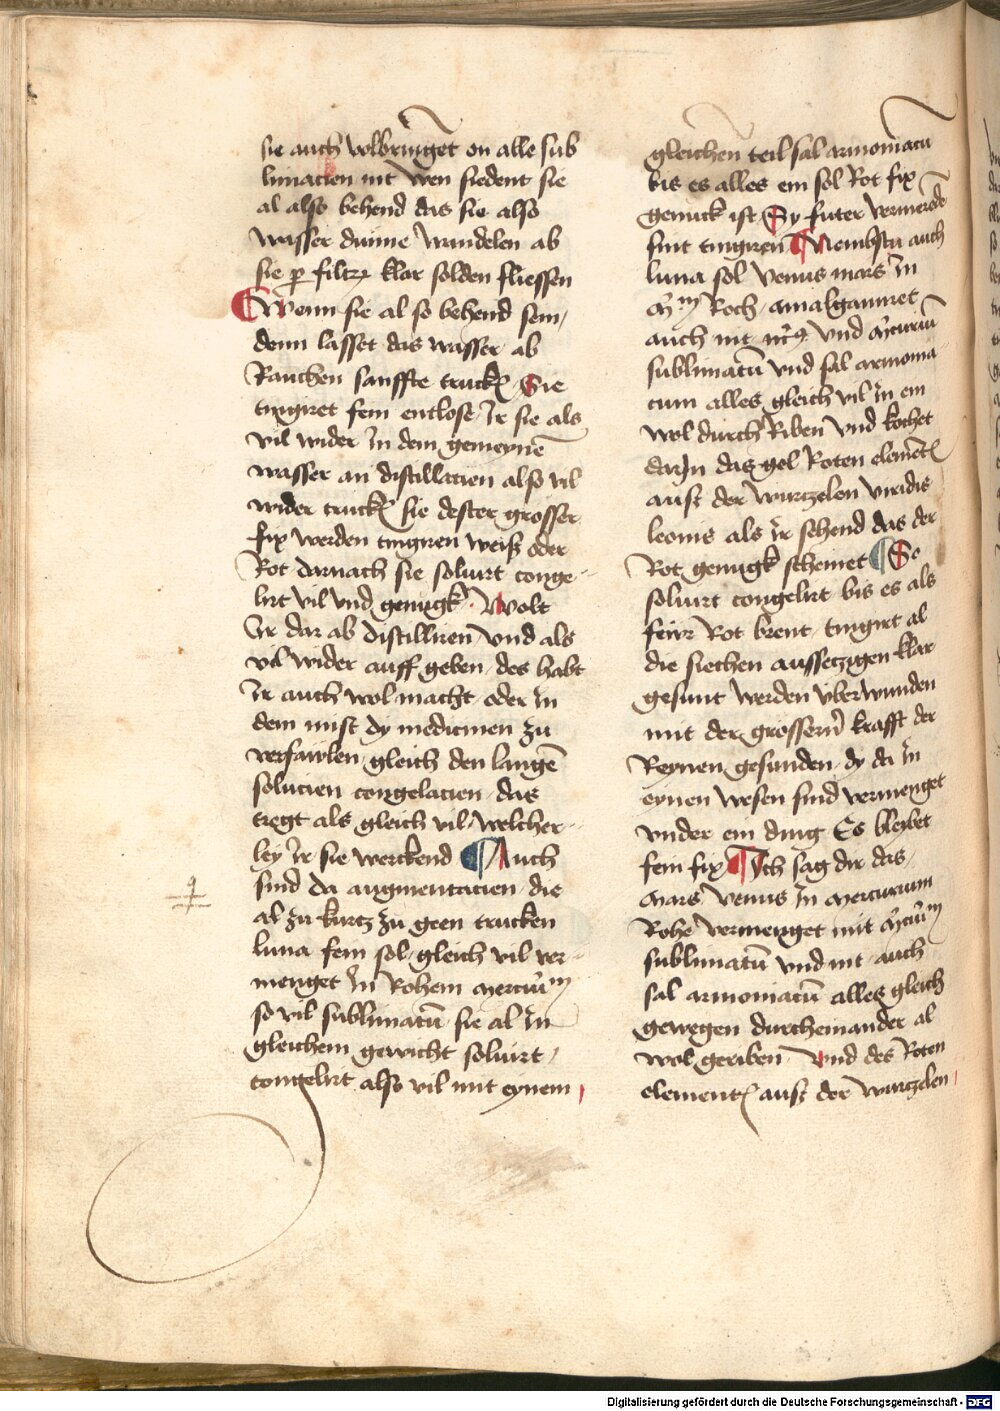 sie auch volbringet on alle sub
limacien nit wen siedent sie
al also behend das sie also
wasser dunne wandelen ab
sie p filtz klar solden fliessen
Wenn sie al so behend sein
denn lasset das wasser ab
Rauchen sanffte truckē Sie
tingiret fein entlose ir sie als
vil wider in dem gemeynē
wasser an distillacien also vil
wider truckē sie dester grosser
fix werden tingiren weiß oder
Rot darnach sie soluirt conge
lirt vil vnd genugk Wolt
Ir dar ab distilliren vnd als
vil wider auff geben des habt
Ir auch wol macht oder in
dem mist dy medicinen zu
verfawlen gleich den langē
solucien congelacien das
tregt als gleich vil welcher
ley ir sie werckend Auch
sind da augmentacien die
al zu kurtz zu geen trucken
luna fein sol gleich vil ver
menget in Rohem mercuriū
so vil sublimatū sie al in
gleichem gewicht soluirt
congelirt also vil mit eynem
gleichen teil sal armoniacū
bis es alles ein sol Rot fix
genuck ist Sy futer vermerode
sint tingiren Nembstu auch
luna sol venus mars in
Roch amalgamiret
auch mit vnd mcuriū
sublimatū vnd sal armonia
cum alles gleich vil in ein
wol durch Riben vnd kochet
darin das gel Roten elemēt
auß der wurtzelen viridis
leonis als ir sehend das der
Rot genugk scheinet So
soluirt congelirt bis es als
fewr Rot brent tingirt al
die siechen aussetzigen klar
gesunt werden vberwunden
mit der grossern krafft der
Reynen gesunden dy da in
eynen wesen sind vermenget
vnder ein ding Es bleybet
fein fix Ich sag dir das
mars venus in mercurium
Rohe vermenget mit mcuriū
sublimatū vnd nit auch
sal armoniacū alles gleich
gewegen durcheinander al
wol geriben vnd des Roten
element auß der wurtzelen
Digitalisierung gefördert durch die Deutsche Forschungsgemeinschaft - DFG